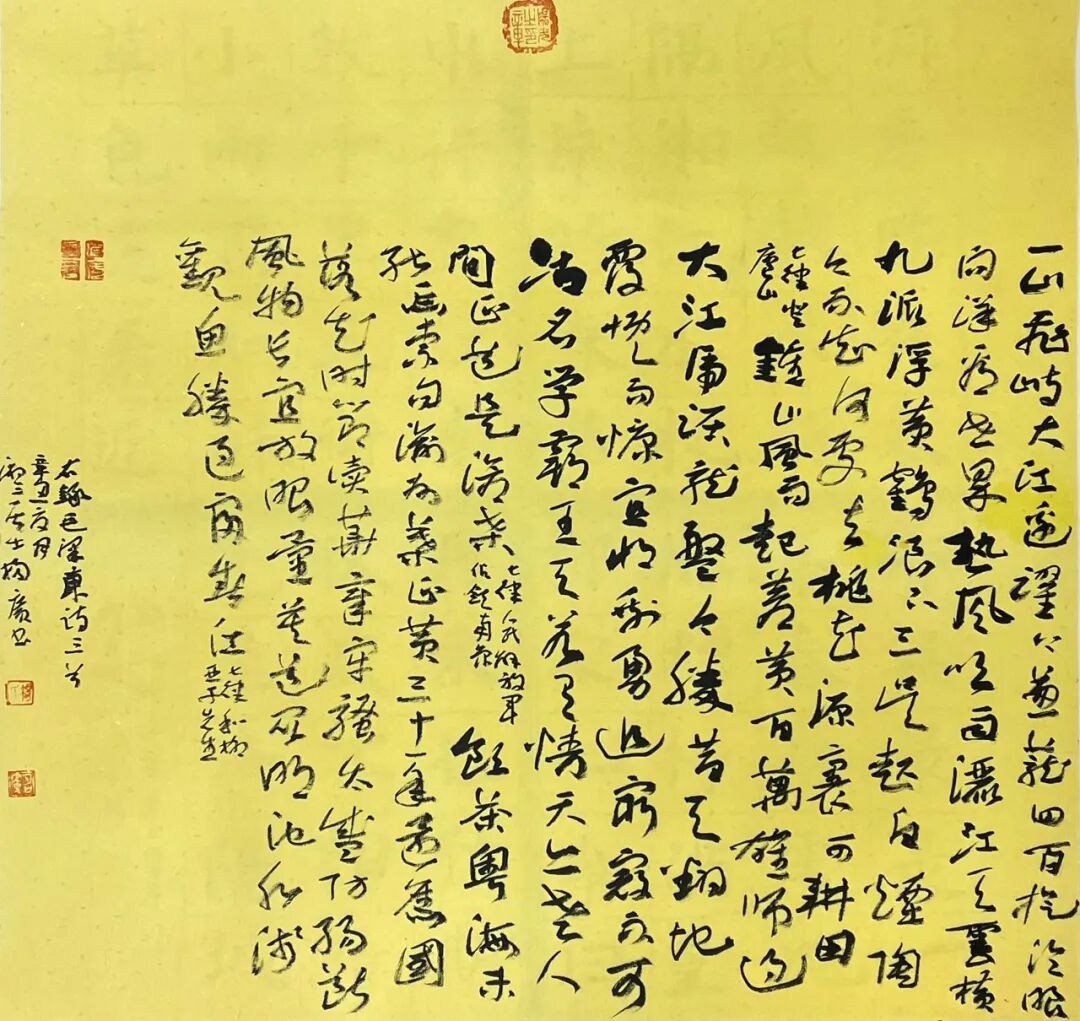 一山飛峙大江邊躍上葱蘢四百旋冷眼
向洋看世界熱風吹雨灑江天雲橫
九派浮黃鶴浪下三吳起白煙陶
令不知何處去桃花源裏可耕田
七律登廬山 鍾山風雨起蒼黃百萬雄師過
大江虎踞龍盤今勝昔天翻地
覆慨而慷宜將剩勇追窮寇不可
沽名學霸王天若有情天亦老人
間正道是滄桑 七律人民解放軍佔領南京 飲茶粵海未
能忘索句渝州葉正黃三十一年還舊國
落花時節讀華章牢騷太盛防腸斷
風物長宜放眼量莫道昆明池水淺
觀魚勝過富春江 七律和柳亞子先生
右錄毛澤東詩三首
辛丑月
三居士